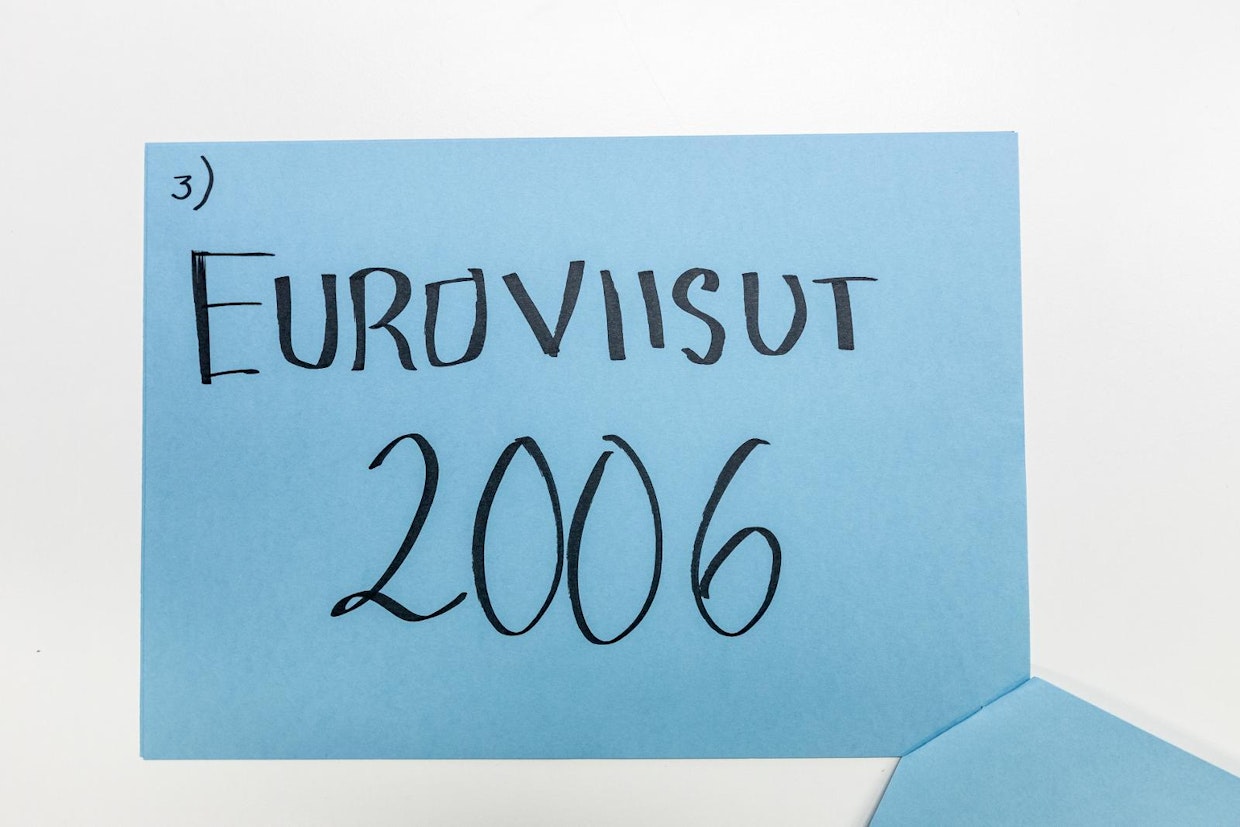 3)
EUROVIISUT
2006